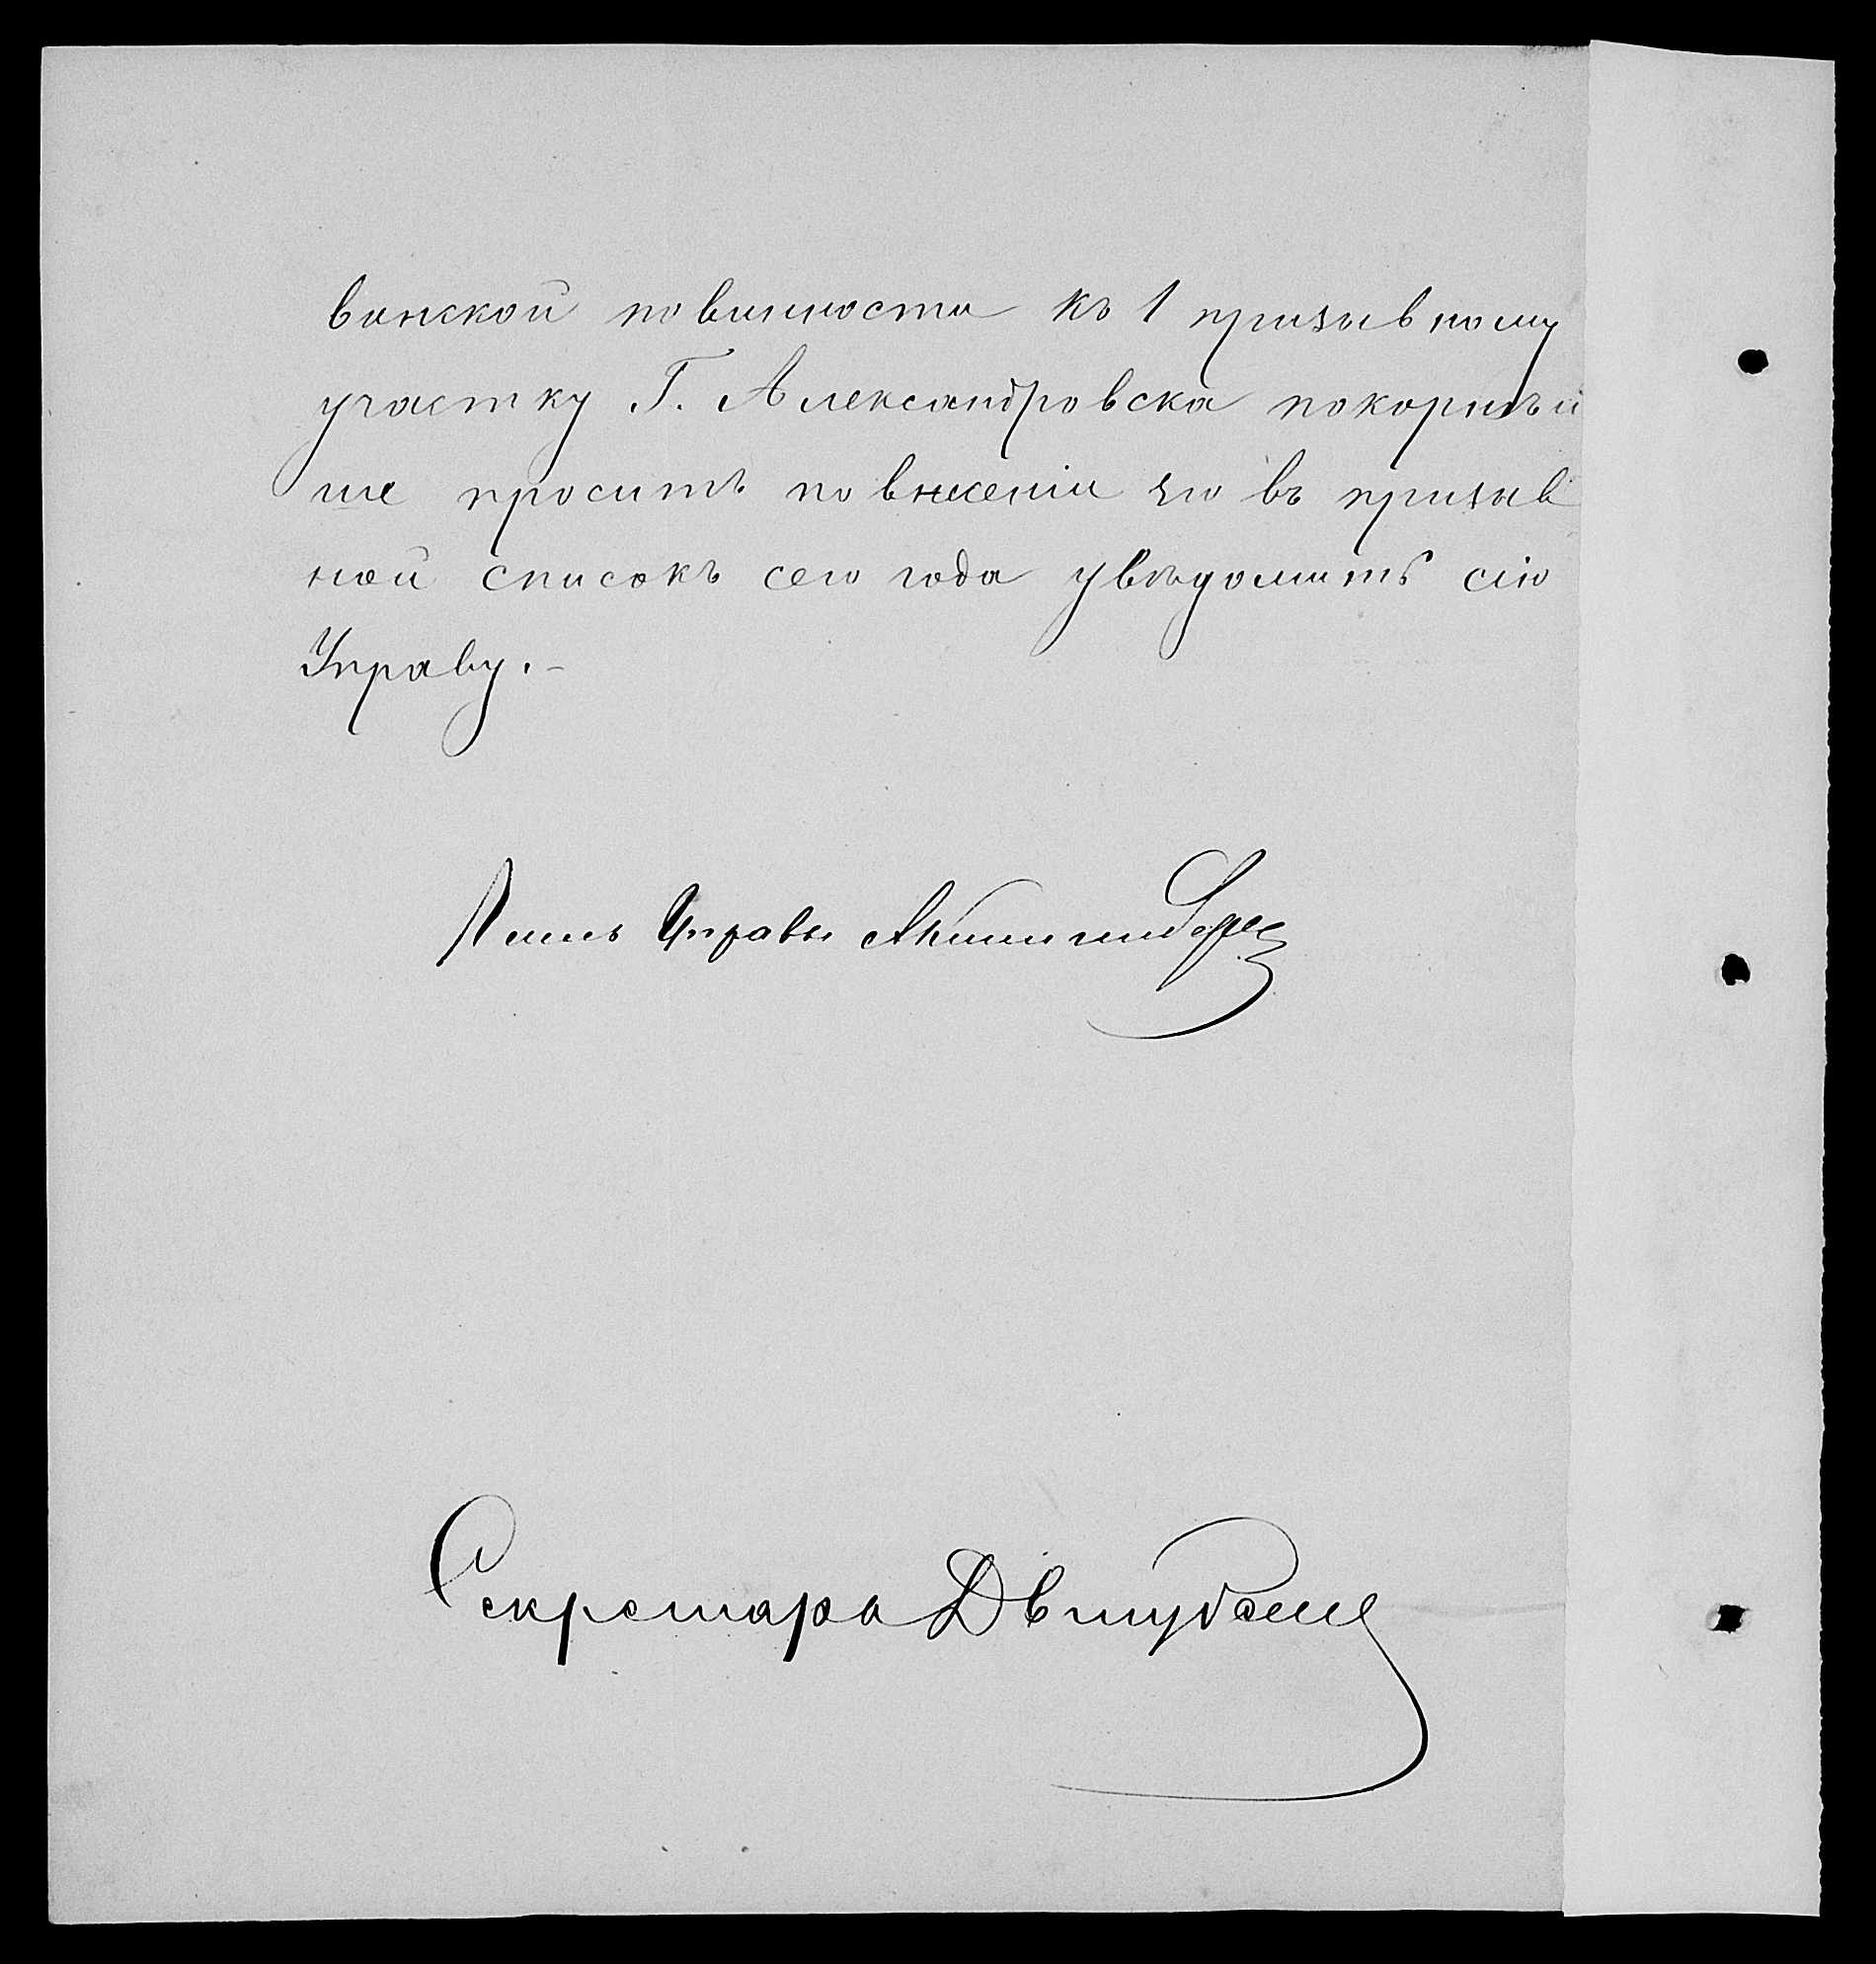 винской повинности къ 1 призывному
участку Г. Александровска покорнѣй
ше проситъ по внесеніи его въ призыв
ной списокъ сего года увѣдомить сію
Управу.-
Членъ Управы
Секретарь